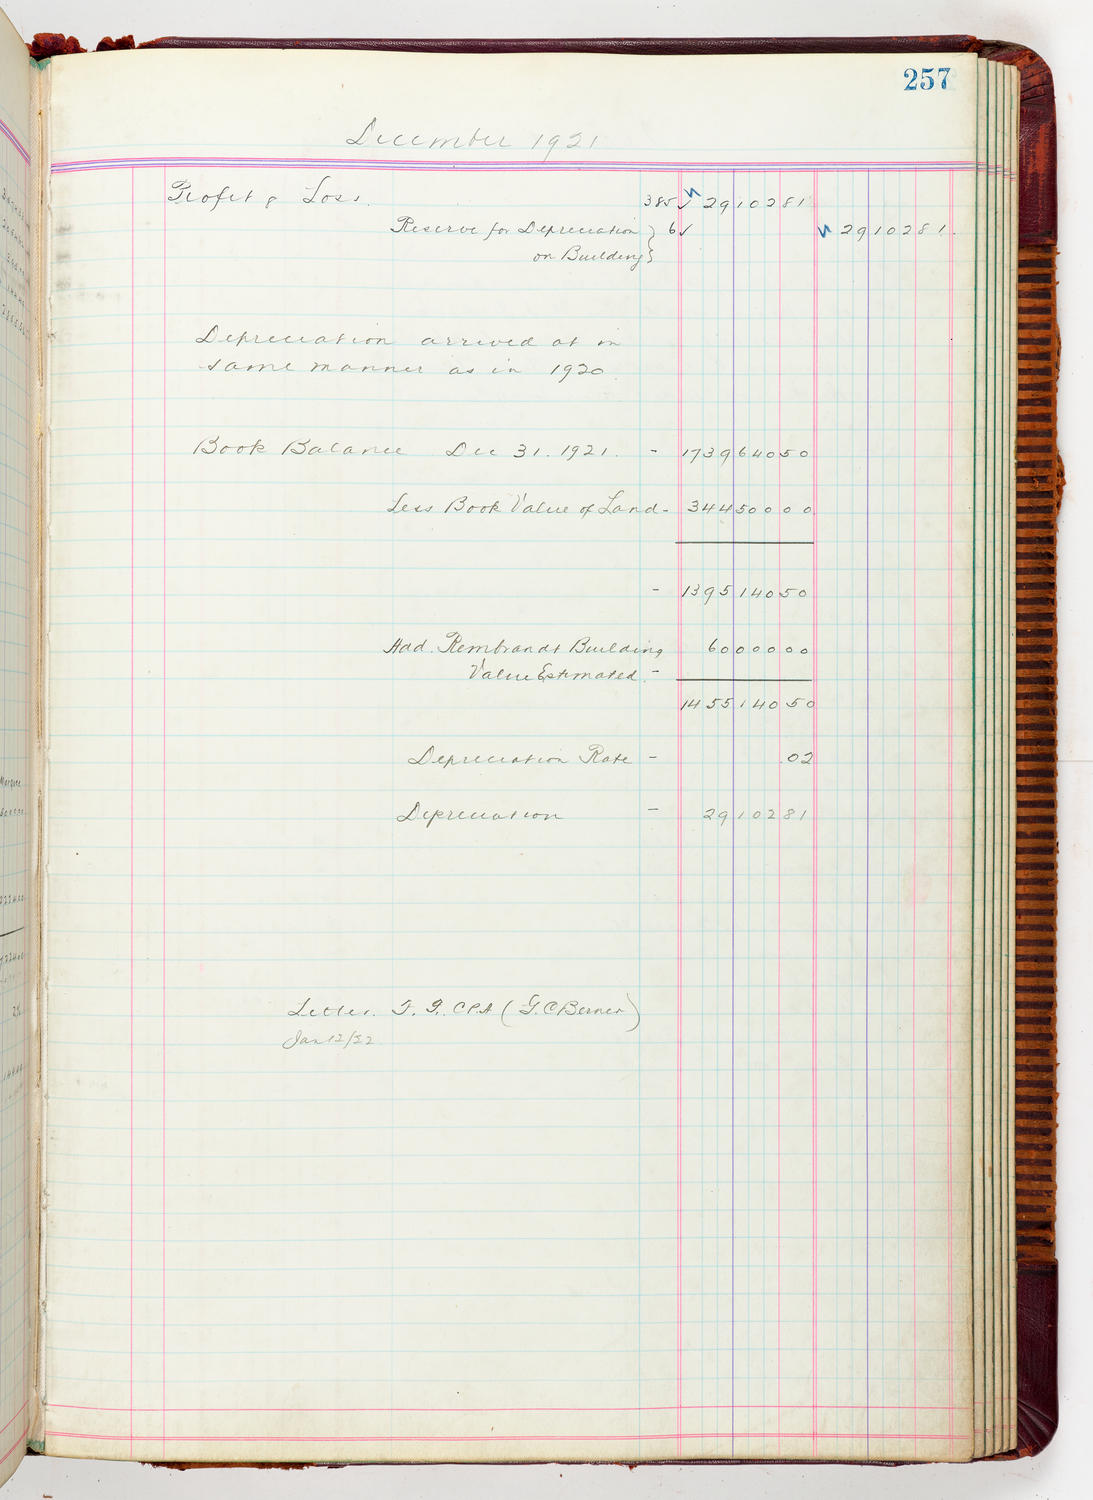 257
December 1921
Profit & Loss. 385 ✓ 29 102 81
Reserve for Depreciation } 6 ✓ 29 102 81.
on Building }
Depreciation arrived at in
same manner as in 1920.
Book Balance Dec 31. 1921. - 1739 640 50
Less Book Value of Land - 344 500 00
- 1395 140 50
Add. Rembrandt Building 60 000 00
Value Estimated. -
1455 140 50
Depreciation Rate - .02
Depreciation - 29 102 81
Letter. F. I. CPA (G. C Berner)
Jan 12/22